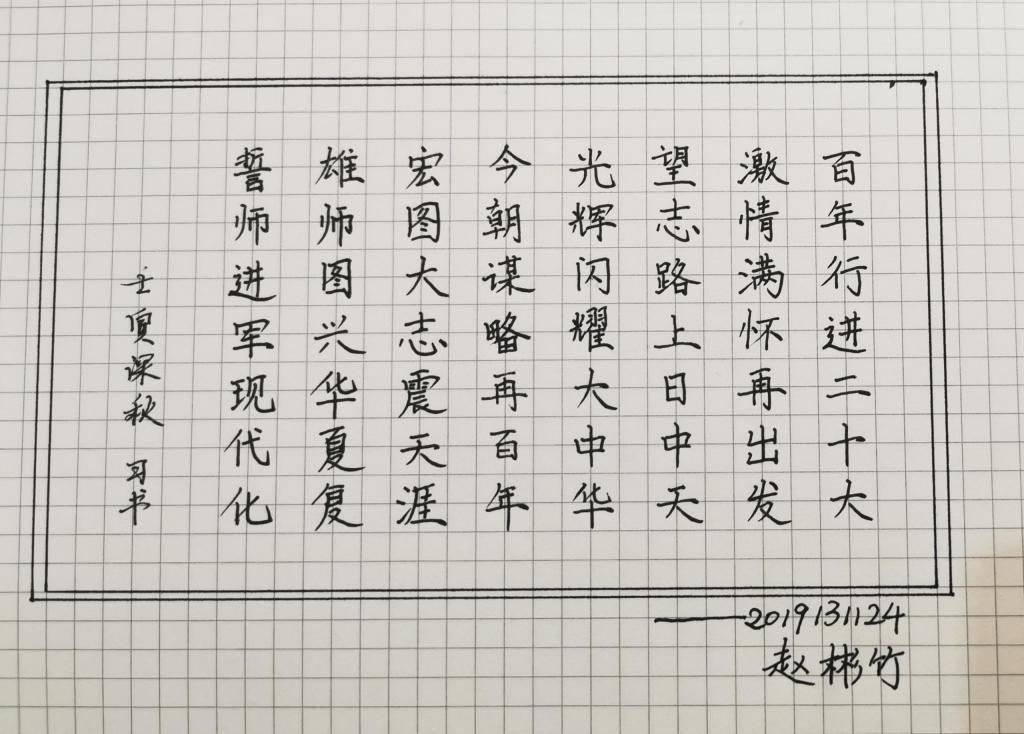 百年行进二十大
激情满怀再出发
望志路上日中天
光辉闪耀大中华
今朝谋略再百年
宏图大志震天涯
雄师图兴华夏复
誓师进军现代化
壬寅深秋 习书
——2019131124
赵彬竹